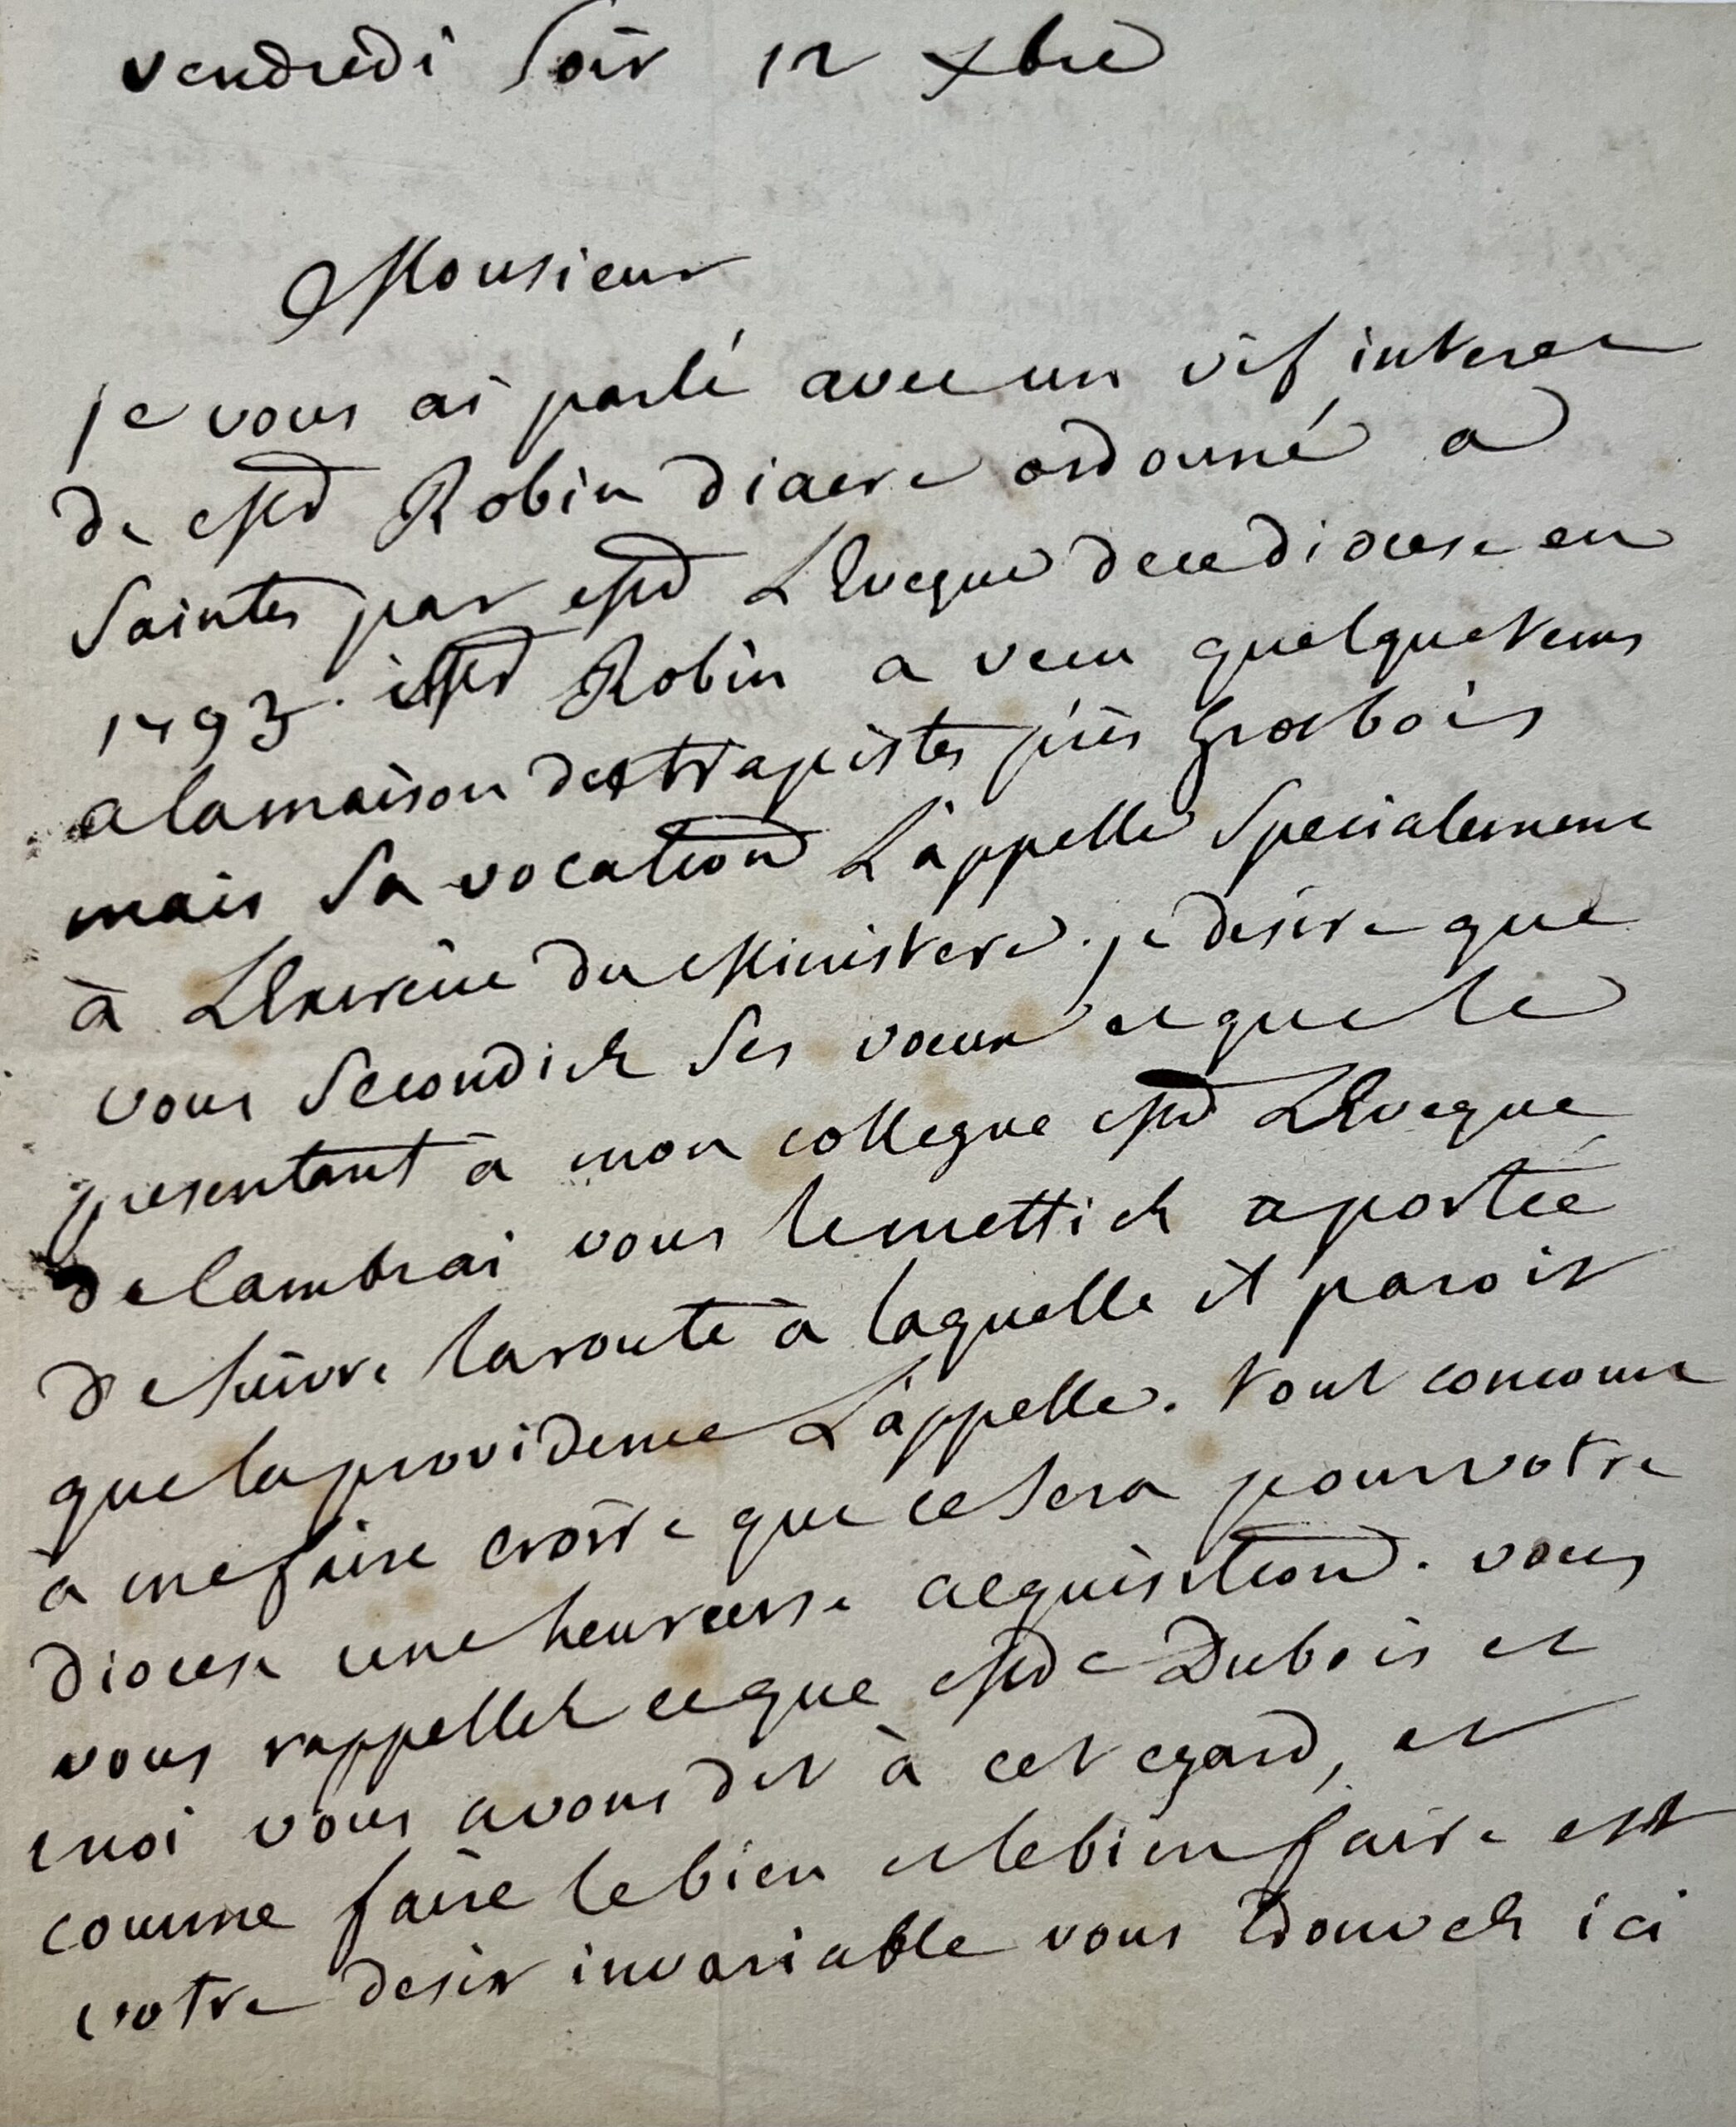 vendredi soir 12 xbre
Monsieur
je vous ai parlé avec un vif interet
de Mr Robin diacre ordonné a
Saintes par Mr L'Eveque de ce diocese en
1793. Mr Robin a vecu quelque tems
a la maison des trapistes près Grosbois
mais sa vocation L'appelle specialement
à L'Exercice du Ministere. je desire que
vous secondiez ses voeux et que le
presentant à mon collegue Mr L'Eveque
de Cambrai vous le mettiez a portée
de suivre la route à laquelle il paroit
que la providence L'appelle. tout concourt
à me faire croire que ce sera pour votre
diocese une heureuse acquisition. vous
vous rappellez ce que Mde Dubois et
moi vous avons dit à cet egard, et
comme faire le bien et le bien faire est
votre desir invariable vous trouvez ici